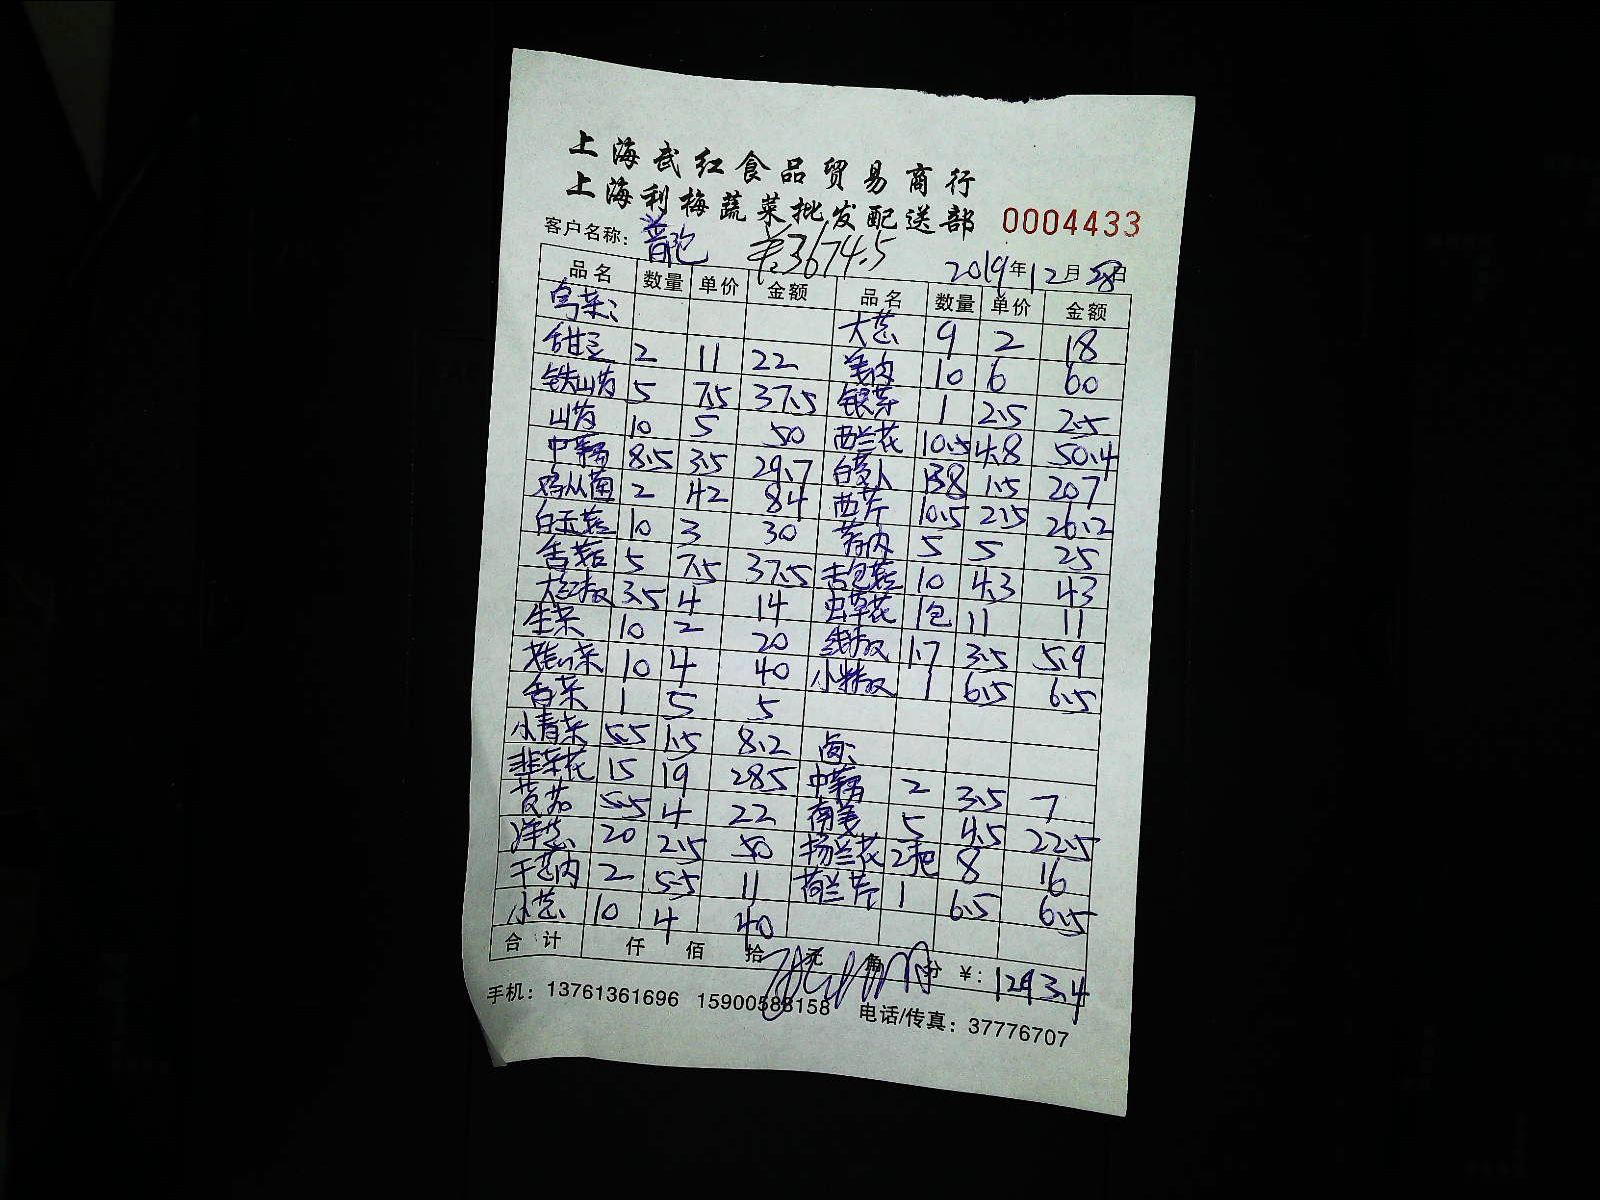 上海武红食品贸易商行
上海利梅蔬菜批发配送部 0004433
客户名称: ¥:3674.5 2019年12月28日
品名 数量 单价 金额 品名 数量 单价 金额
大葱 9 2 18
甜豆 2 11 22 姜肉 10 6 60
铁山药 5 7.5 37.5 银芽 1 2.5 2.5
山药 10 5 50 西兰花 10.5 4.8 50.4
8.5 3.5 29.7 白萝卜 138 1.5 207
鸡从菌 2 42 84 西芹 10.5 2.5 26.2
白玉菇 10 3 30 5 5 25
香菇 5 7.5 37.5 10 4.3 43
大红椒 3.5 4 14 虫草花 1包 11 11
生菜 10 2 20 线椒 1.7 3.5 5.9
10 4 40 小米椒 1 6.5 6.5
香菜 1 5 5
小青菜 5.5 1.5 8.2 卤:
韭菜花 15 19 285 2 3.5 7
5.5 4 22 南姜 5 4.5 22.5
洋葱 20 2.5 50 杨兰花 2把 8 16
干葱肉 2 5.5 11 荷兰芹 1 6.5 6.5
小葱 10 4 40
合计 仟 佰 拾 元 角 分 ¥: 1293.4
手机: 13761361696 15900588158 电话/传真: 37776707